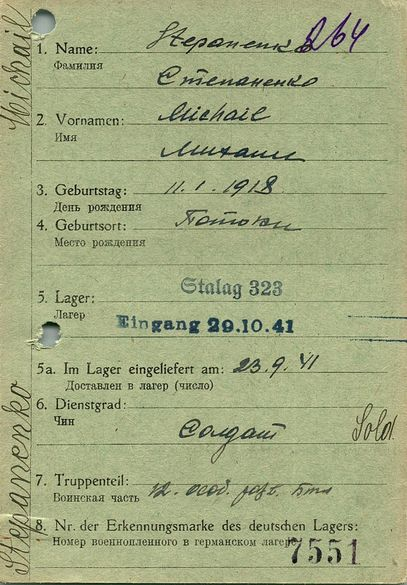 Michail
Stepanenko
1. Name: Stepanenko 264
Фамилия
Степаненко
2. Vornamen: Michail
Имя
Михаил
3. Geburtstag: 11. 1. 1918
День рождения
4. Geburtsort: Потоки
Место рождения
Stalag 323
5. Lager:
Лагерь
Eingang 29.10.41
5a. Im Lager eingeliefert am: 23.9.41
Доставлен в лагер (число)
6. Dienstgrad:
Чин
Солдат Sold.
7. Truppenteil:
Воинская часть 12. особ.
8. Nr. der Erkennungsmarke des deutschen Lagers:
Номер военнопленного в германском лагере
7551